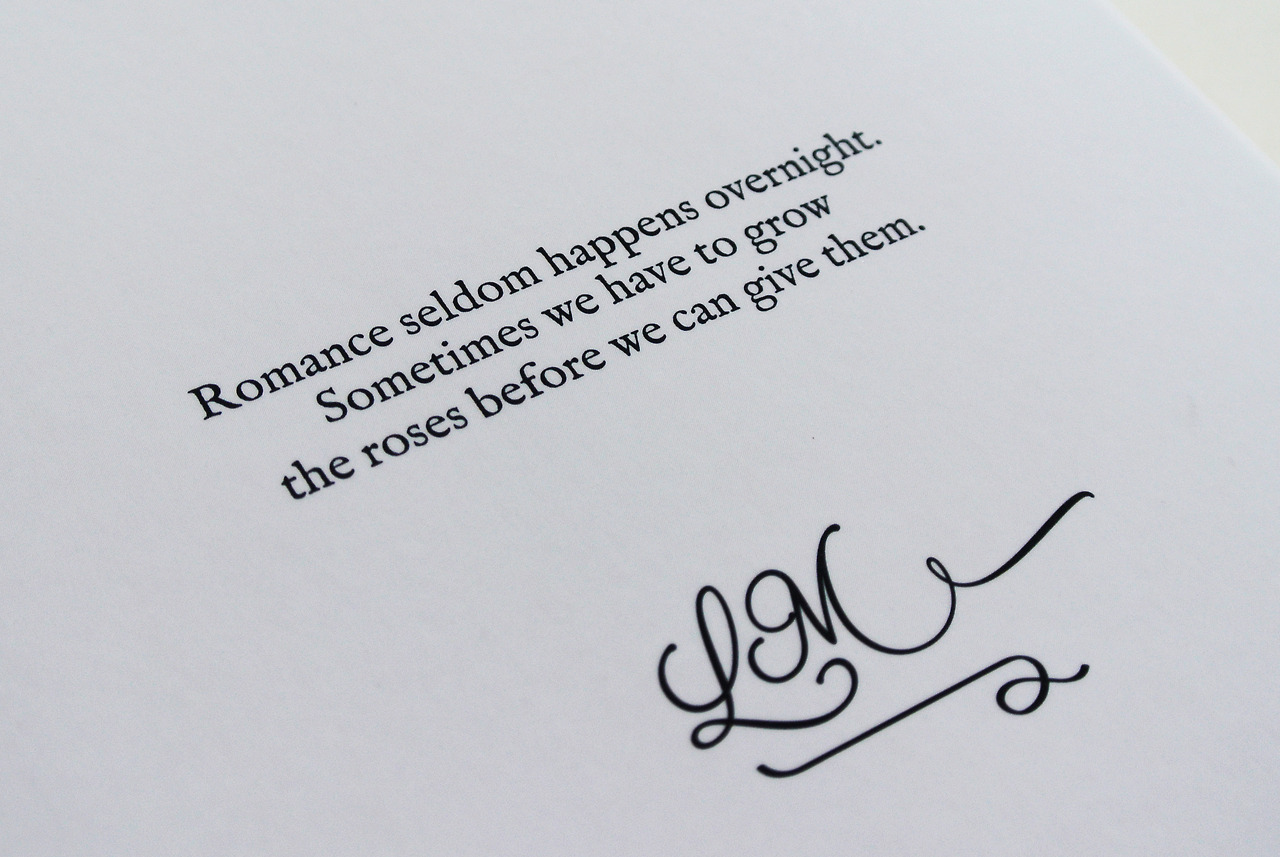 Romance seldom happens overnight.
Sometimes we have to grow
the roses before we can give them.
LM